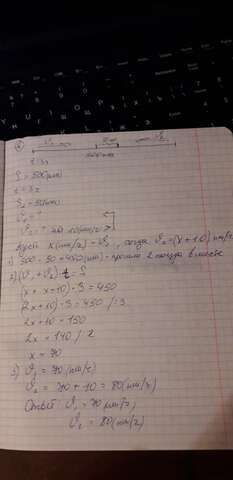 500 км
t = 3ч
S = 500 (км)
t = 3ч
S₂ = 50 (км)
V₁ = ?
V₂ = ? на 10 (км/ч) >
Пусть x (км/ч) - V₁, тогда V₂ = (x + 10) км/ч
1) 500 - 50 = 450 (км) - прошли 2 поезда вместе
2) (V₁ + V₂) · t = S
(x + x + 10) · 3 = 450
(2x + 10) · 3 = 450 / : 3
2x + 10 = 150
2x = 140 / 2
x = 70
3) V₁ = 70 (км/ч)
V₂ = 70 + 10 = 80 (км/ч)
Ответ: V₁ = 70 км/ч,
V₂ = 80 (км/ч)